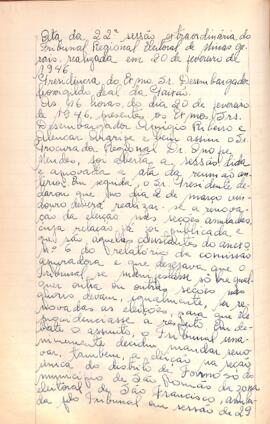 Ata da 22ª sessão extraordinária do
Tribunal Regional Eleitoral de Minas Ge-
rais, realizada em 20 de fevereiro de
1946.
Presidência do Exmo. Sr. Desembargador
Leal da Paixão.
Às 16 horas, do dia 20 de fevereiro
de 1946, presentes os Exmos. Srs.
Desembargador Ribeiro e
Alencar Araripe e bem assim o Sr.
Procurador Regional Dr. Onofre
Mendes, foi aberta a sessão, lida
e aprovada a ata da reunião an-
terior. Em seguida o Sr. Presidente de-
clarou que no dia 2 de março vin-
douro deverá realizar-se a renova-
ção da eleição nas seções anuladas,
cuja relação já foi publicada e
que são aquelas constantes do anexo
nº 6 do relatório da comissão
apuradora e que desejava que o
Tribunal se manifestasse sobre qual-
quer outra ou outras seções nas
quais devam, igualmente, ser re-
novadas as eleições, para que ele
providenciasse a respeito. Em de-
bate o assunto, o Tribunal una-
nimemente decidiu mandar reno-
var, também, a eleição na seção
única do distrito de Formoso do
município de São Romão da zona
eleitoral de São Francisco, anula-
da pelo Tribunal em sessão de 29